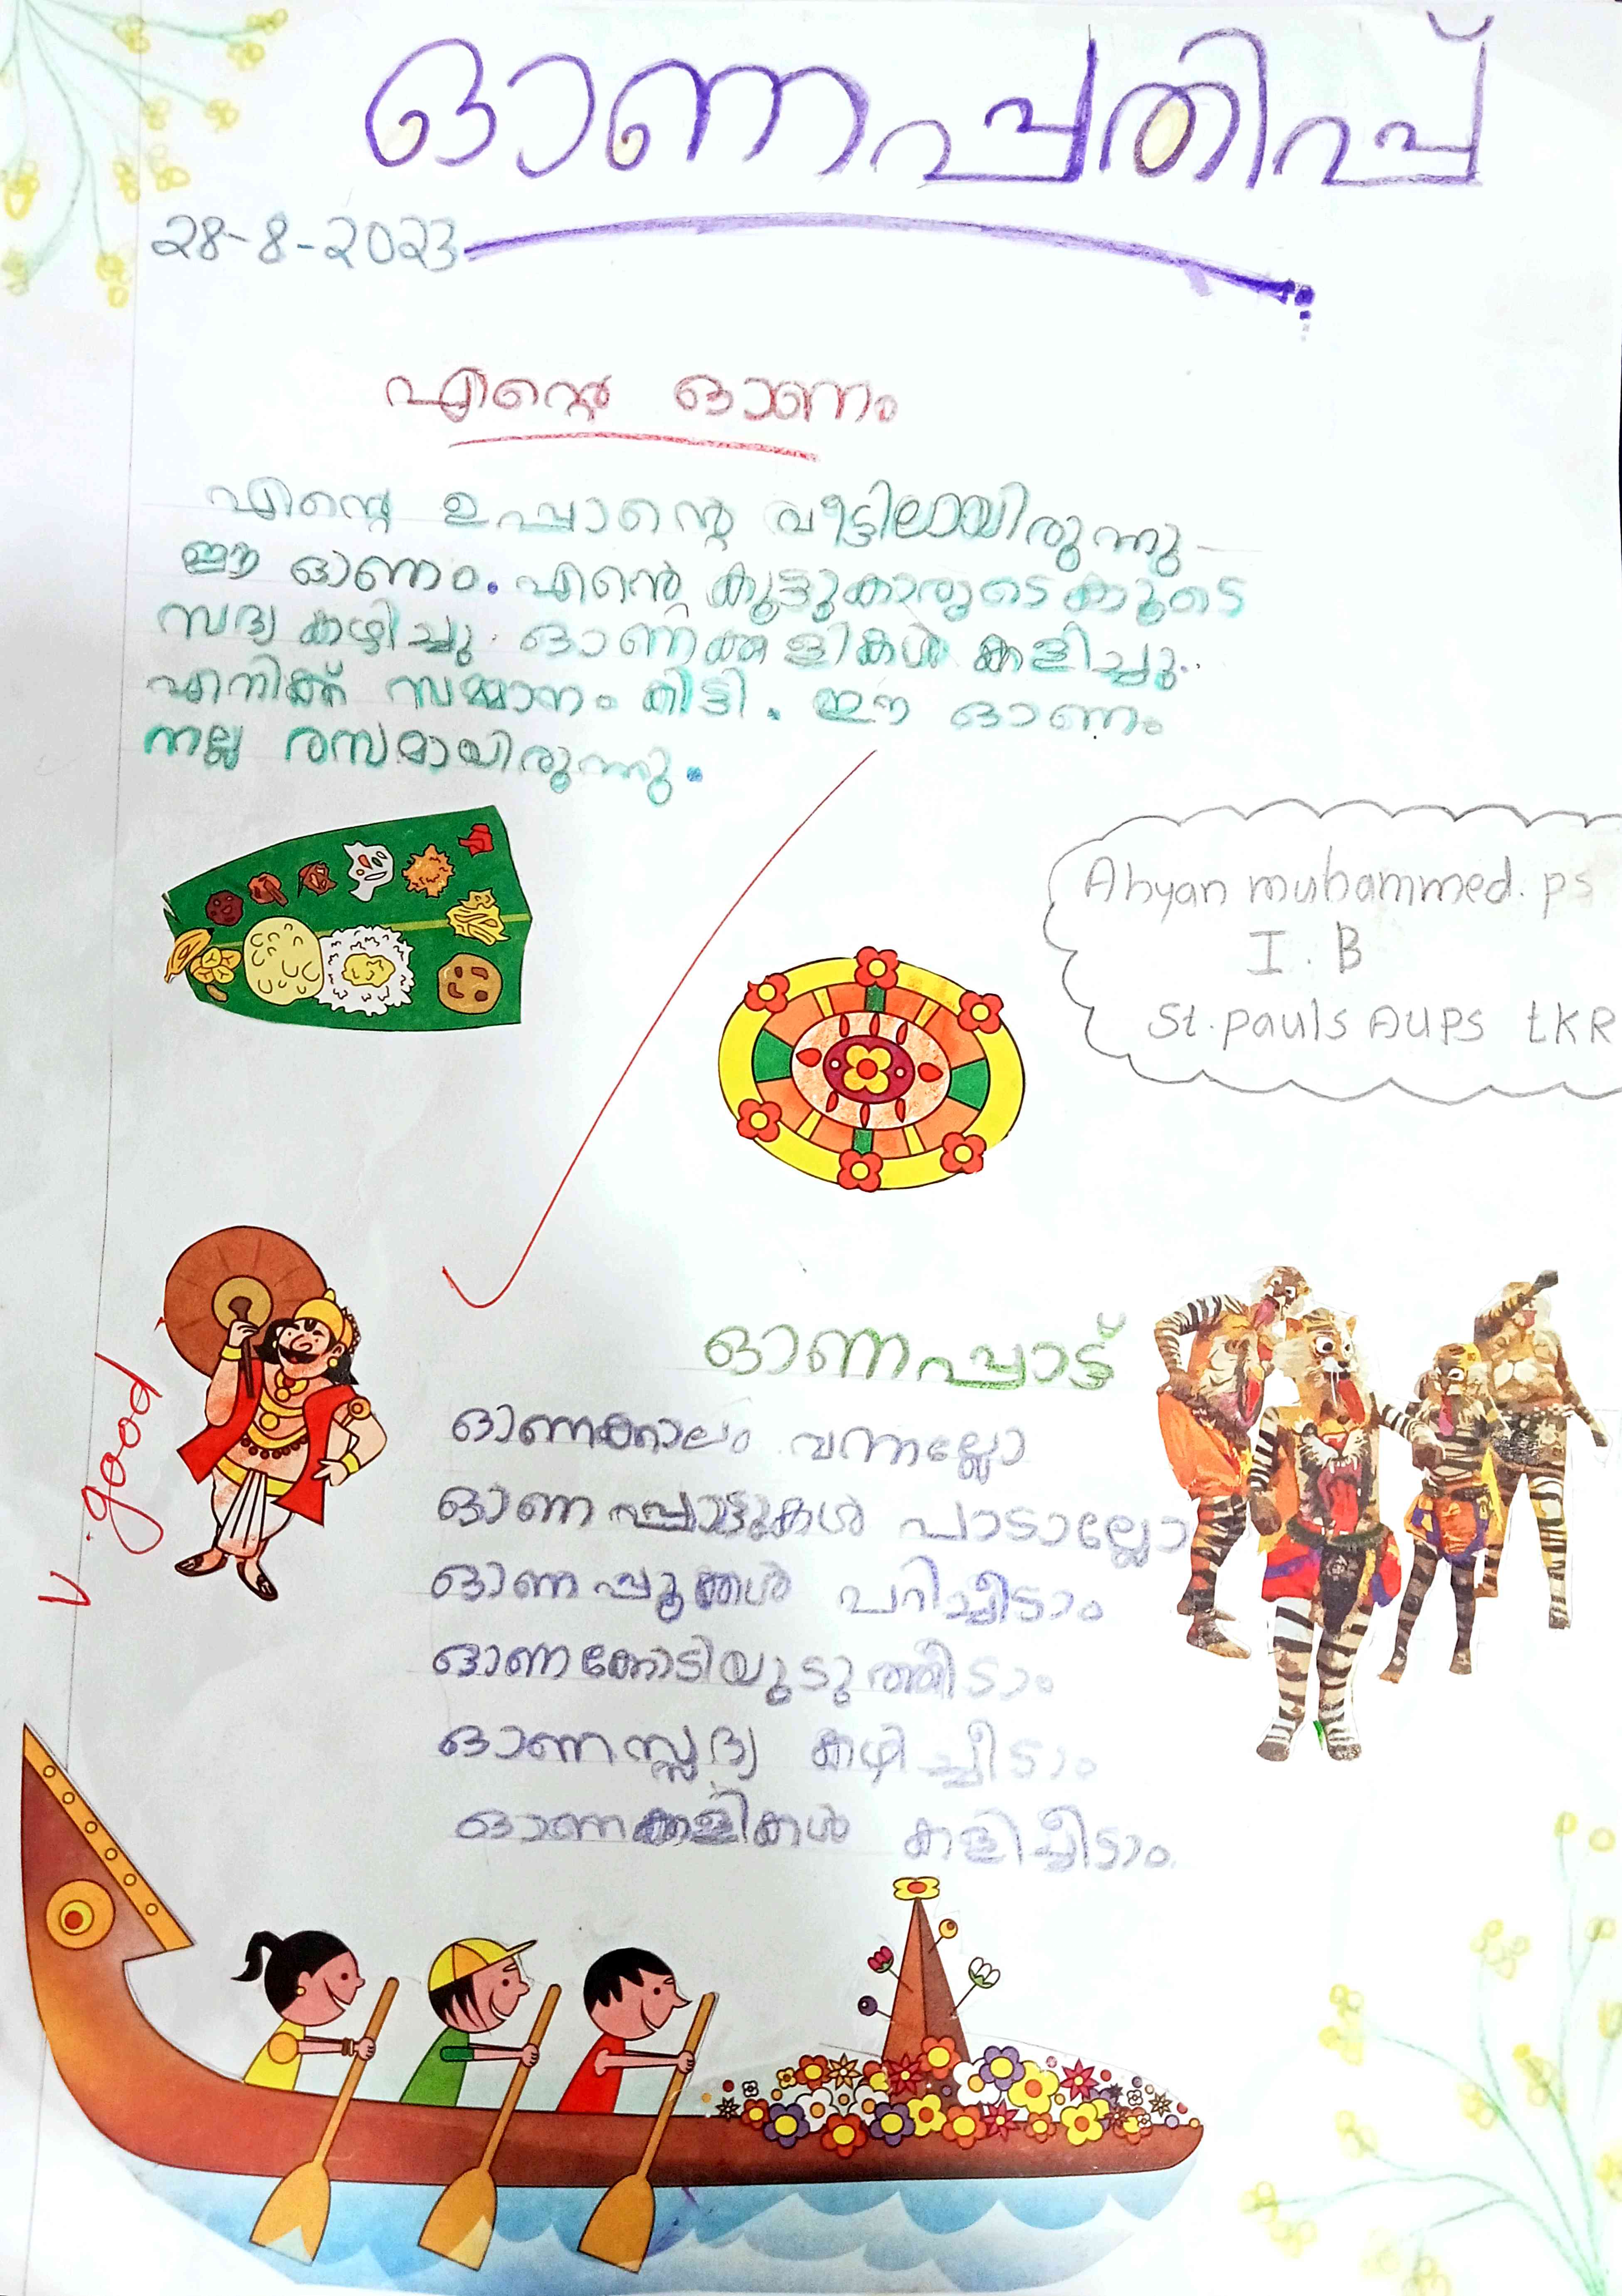 ഓണപ്പതിപ്പ്
28-8-2023
എന്റെ ഓണം
എന്റെ ഉപ്പാന്റെ വീട്ടിലായിരുന്നു
ഈ ഓണം. എന്റെ കൂട്ടുകാരുടെ കൂടെ
സദ്യ കഴിച്ചു. ഓണക്കളികൾ കളിച്ചു.
എനിക്ക് സമ്മാനം കിട്ടി. ഈ ഓണം
നല്ല രസമായിരുന്നു.
Ahyan muhammed. ps
I. B
St. pauls AUPS tKR
v. good
ഓണപ്പാട്ട്
ഓണക്കാലം വന്നല്ലോ
ഓണപ്പാട്ടുകൾ പാടാല്ലോ
ഓണപ്പൂക്കൾ പറിച്ചീടാം
ഓണക്കോടിയുടുത്തീടാം
ഓണസ്സദ്യ കഴിച്ചീടാം
ഓണക്കളികൾ കളിച്ചീടാം.